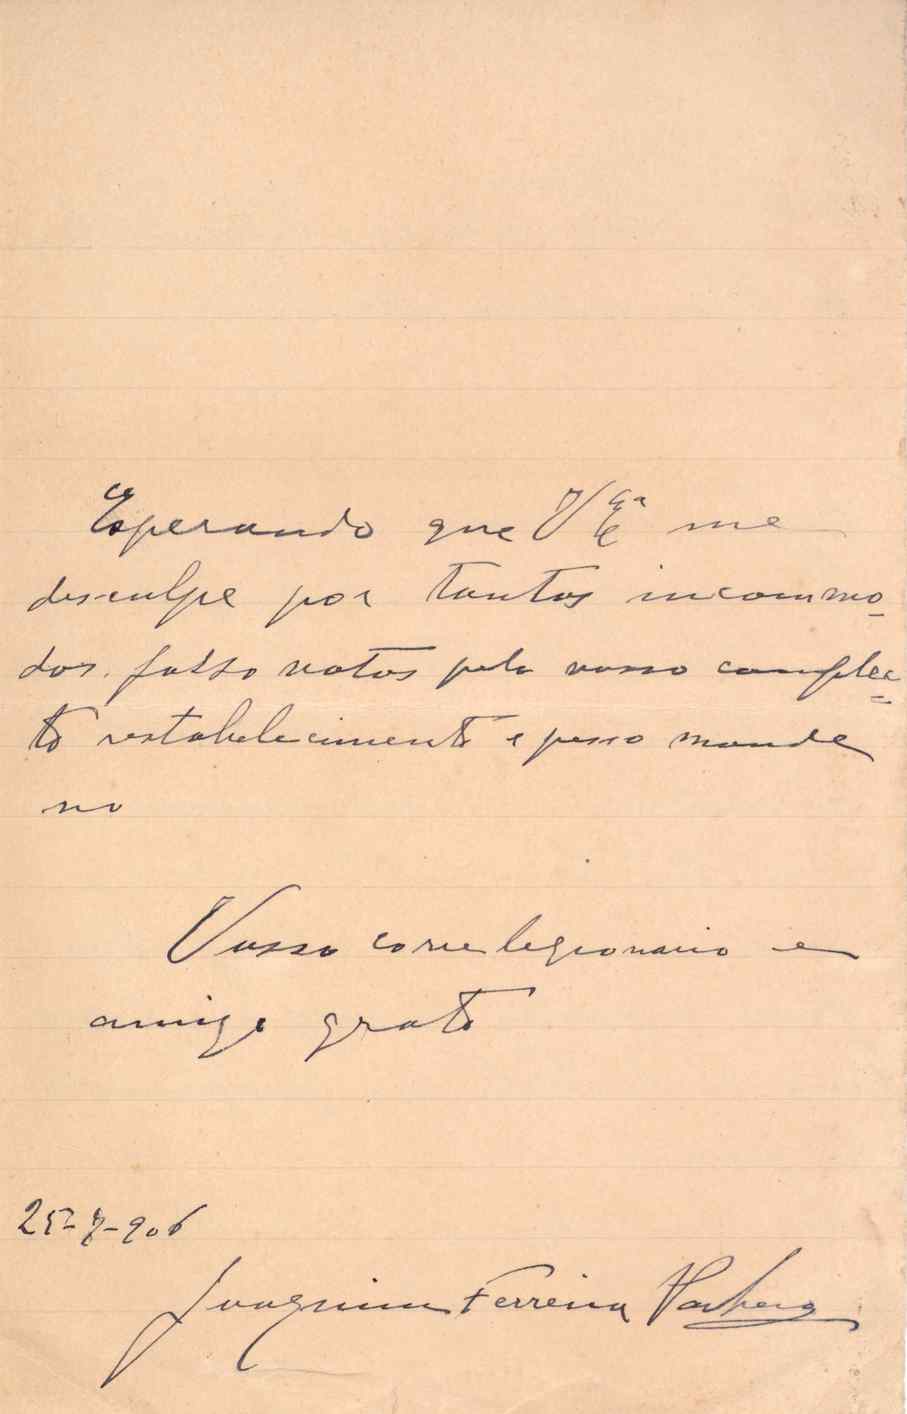 Esperando que V Eª me
desculpe por tantos incommo-
dos. fasso votos pelo vosso comple-
to restabelecimento e pesso mande
no
Vosso correlegionario e
amigo grato
25-7-906
Joaquim Ferreira